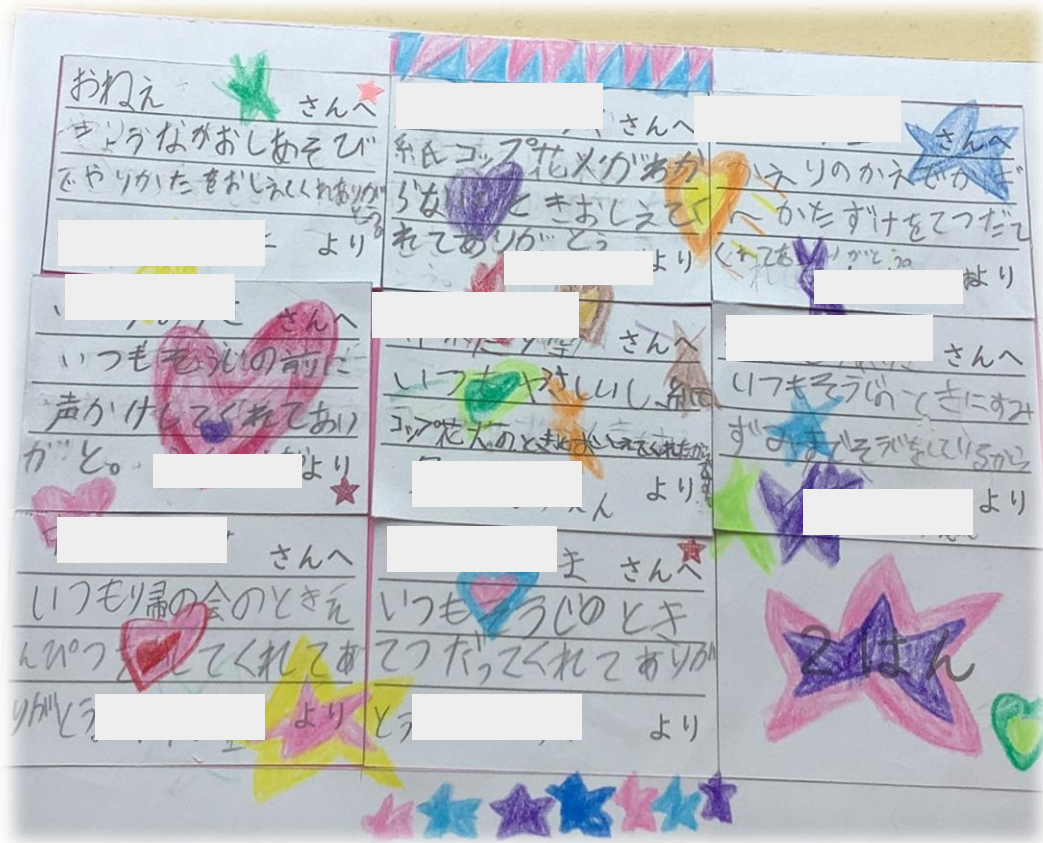 おねえ さんへ
きょうながおしあそび
でやりかたをおしえてくれありが
とう
より
さんへ
紙コップ花火がわか
らないときおしえてく
れてありがとう
より
さんへ
かえりのかえ
へかたずけをてつだて
くれてあ
より
さんへ
いつもそうじの前に
声かけしてくれてあり
がと。
より
さんへ
いつもやさしいし、紙
コップ花火のときにおしえてくれたから
より
さんへ
いつもそうじのときにすみ
ずみまでそうじをしているから
より
さんへ
いつもり帰の会のときえ
んぴつを してくれてあ
りがとう
より
さんへ
いつもそうじのとき
てつだってくれてありが
とう
より
2はん